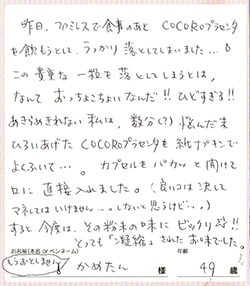 昨日、ファミレスで食事のあと COCOROプラセンタ
を飲もうとして、うっかり落としてしまいました…。
この貴重な一粒を落としてしまうとは、
なんて おっちょこちょいなんだ!! ひどすぎる!!
あきらめきれない私は、数分(?)悩んだ末
ひろいあげたCOCOROプラセンタを紙ナプキンで
よくふいて…。 カプセルをパカッと開けて
口に直接入れました。(良い口は決して
マネしてはいけません…。しないと思うけど…。)
すると今度は、その粉末の味にビックリ!!
とっても「凝縮」されたお味でした。
お名前(本名 or ペンネーム) 年齢
もうおとしません
かめたん 様 49 歳